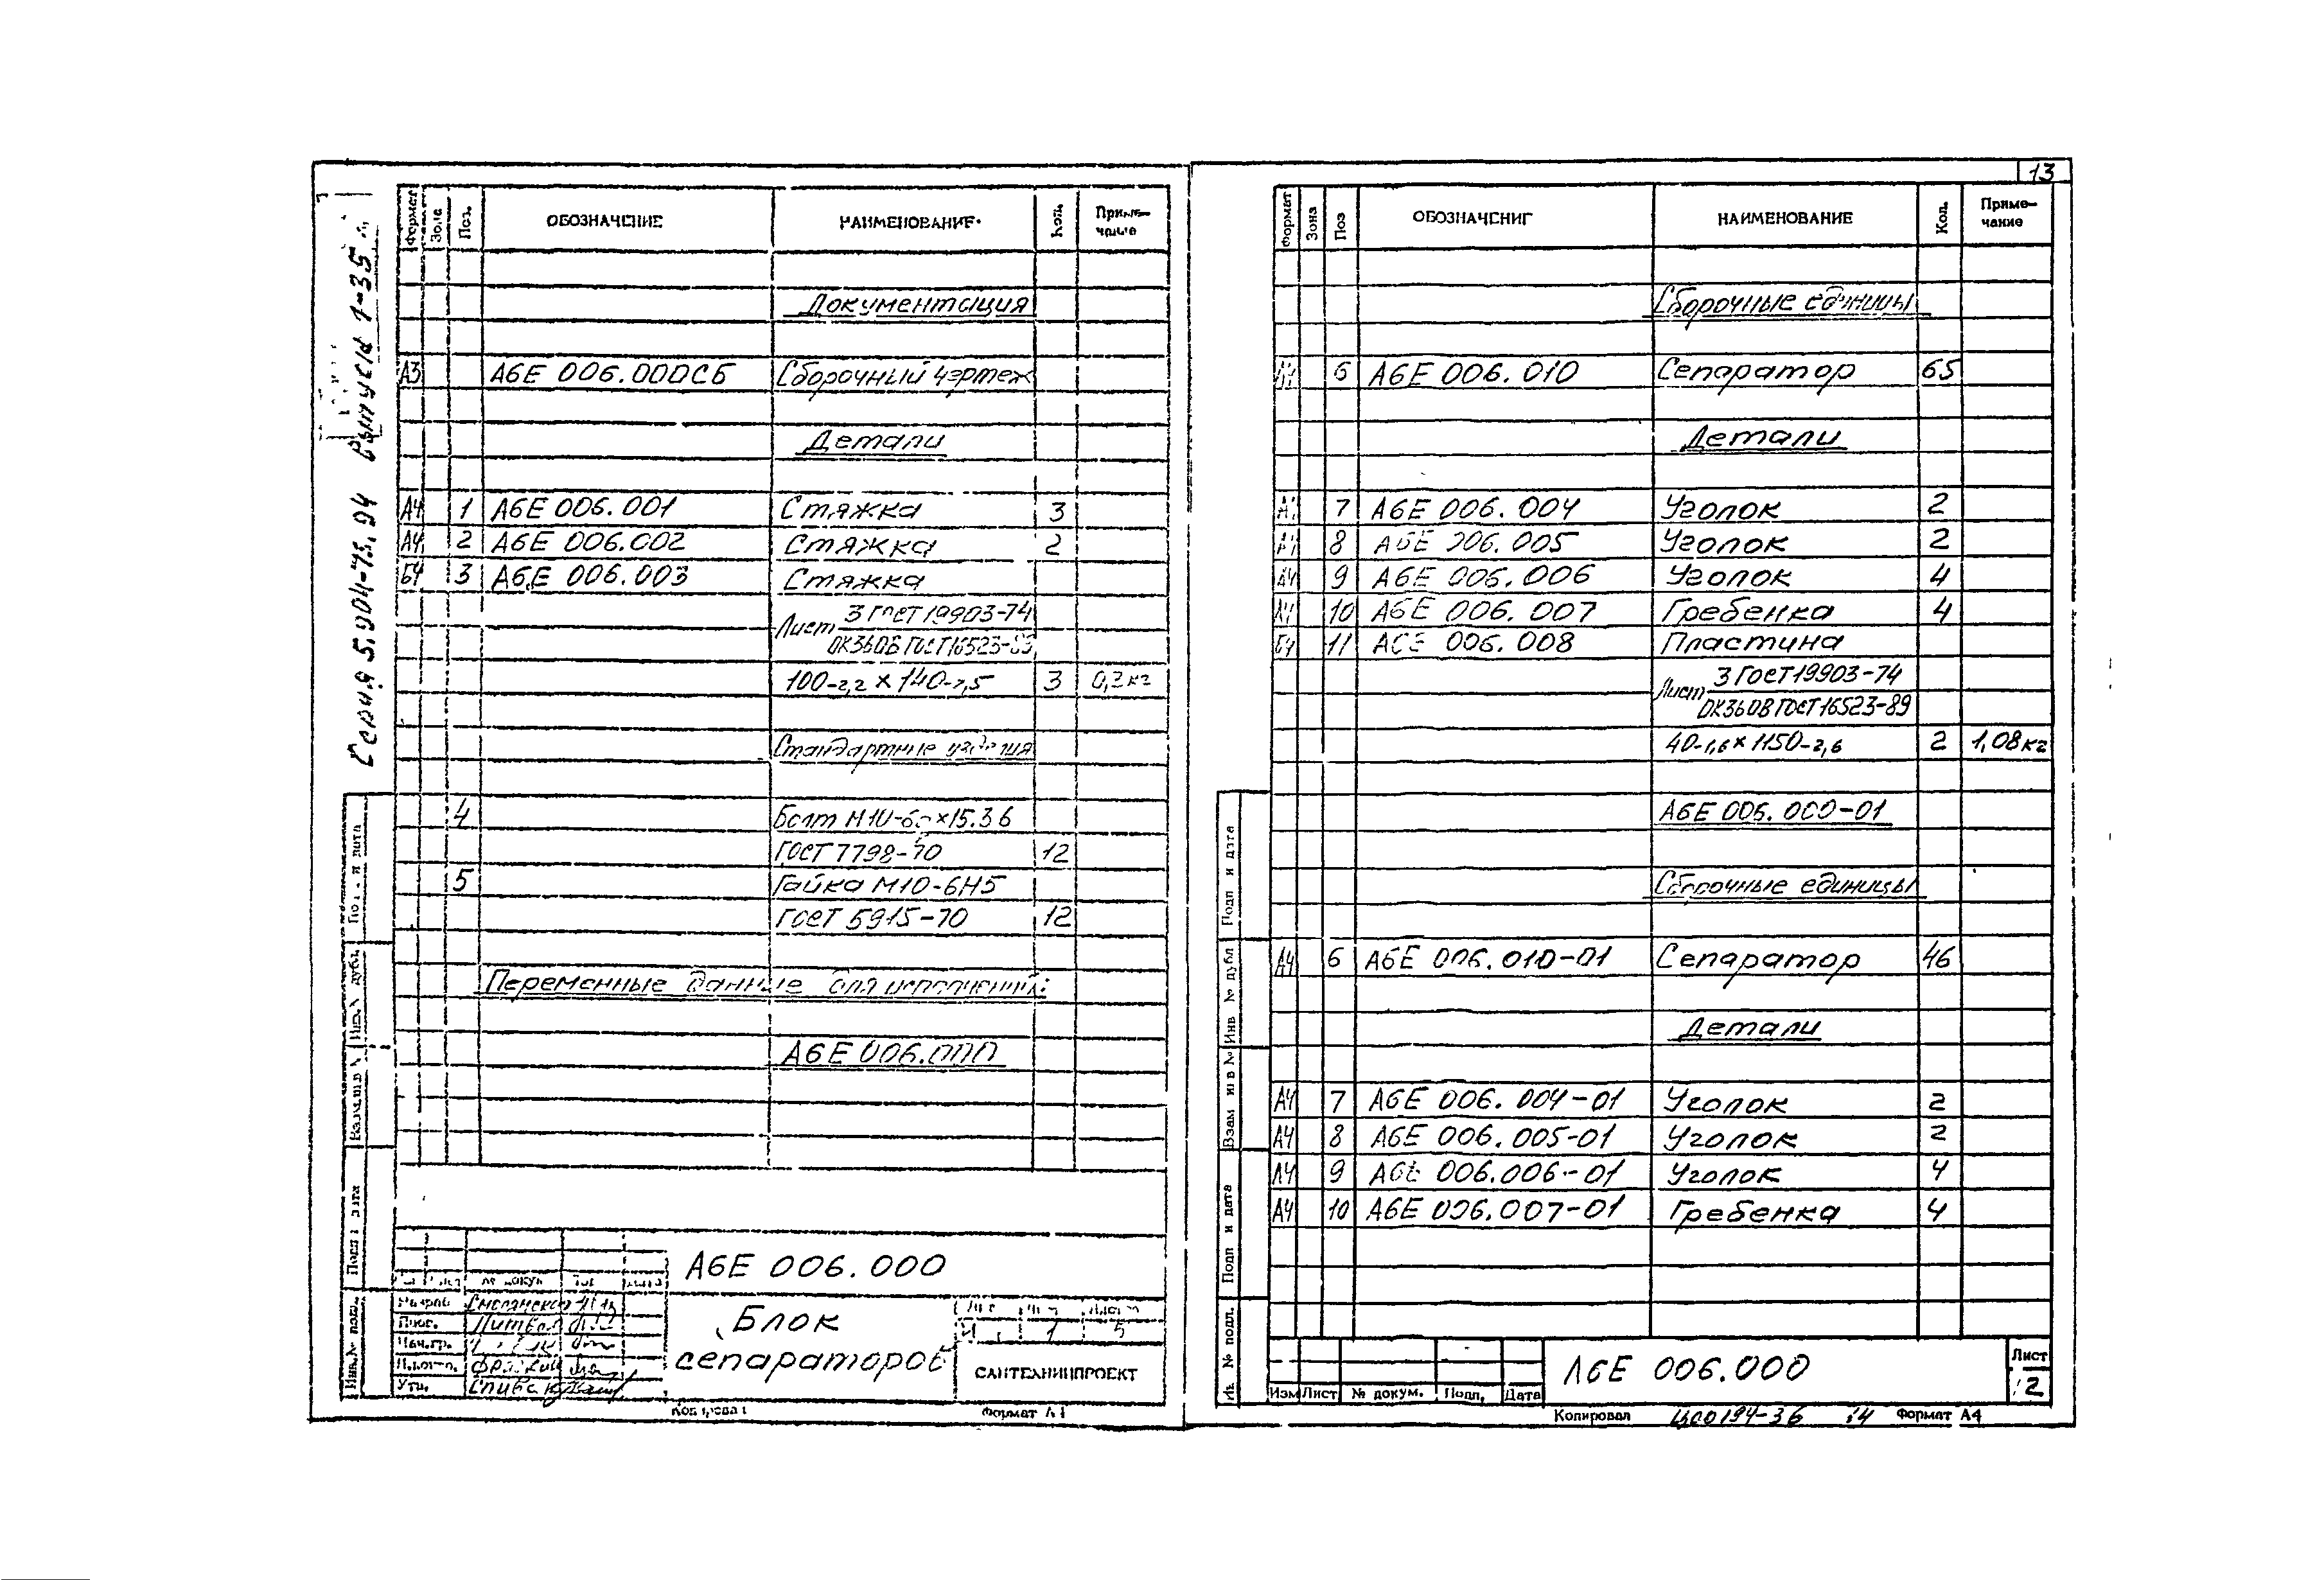 13
Серия 5.904-75.94 Выпуск 1-35
Формат Зона Поз. ОБОЗНАЧЕНИЕ НАИМЕНОВАНИЕ Кол. Приме-
чание
Документация
А3 А6Е 006.000СБ Сборочный чертеж
Детали
А4 1 А6Е 006.001 Стяжка 3
А4 2 А6Е 006.002 Стяжка 2
Б4 3 А6Е 006.003 Стяжка
Лист 3 ГОСТ 19903-74
ОК360В ГОСТ 16523-89
100-2,2 × 140-2,5 3 0,3кг
Стандартные изделия
4 Болт М10- ×15.36
ГОСТ 7798-70 12
5 Гайка М10-6Н5
ГОСТ 5915-70 12
Переменные данные для исполнений:
А6Е 006.000
А6Е 006.000
№ докум
Разраб
Пров.
Нач.гр.
Н.контр.
Утв. Спивак
Блок
сепараторов
Лист Листов
И 1 5
САНТЕХНИИПРОЕКТ
Копировал Формат А4
Инв.№ подл. Подп и дата Взам инв № Инв № дубл Подп и дата
Формат Зона Поз ОБОЗНАЧЕНИЕ НАИМЕНОВАНИЕ Кол. Приме-
чание
Сборочные единицы
А4 6 А6Е 006.010 Сепаратор 65
Детали
А4 7 А6Е 006.004 Уголок 2
А4 8 А6Е 006.005 Уголок 2
А4 9 А6Е 006.006 Уголок 4
А4 10 А6Е 006.007 Гребенка 4
Б4 11 А6Е 006.008 Пластина
Лист 3 ГОСТ 19903-74
ОК360В ГОСТ 16523-89
40-1,6 × 1150-2,6 2 1,08кг
А6Е 006.000-01
Сборочные единицы
А4 6 А6Е 006.010-01 Сепаратор 46
Детали
А4 7 А6Е 006.004-01 Уголок 2
А4 8 А6Е 006.005-01 Уголок 2
А4 9 А6Е 006.006-01 Уголок 4
А4 10 А6Е 006.007-01 Гребенка 4
Изм Лист № докум. Подп. Дата
А6Е 006.000
Лист
2
Копировал ЦС0194-36 14 Формат А4
Ин. № подл. Подп и дата Взам инв № Инв № дубл Подп и дата